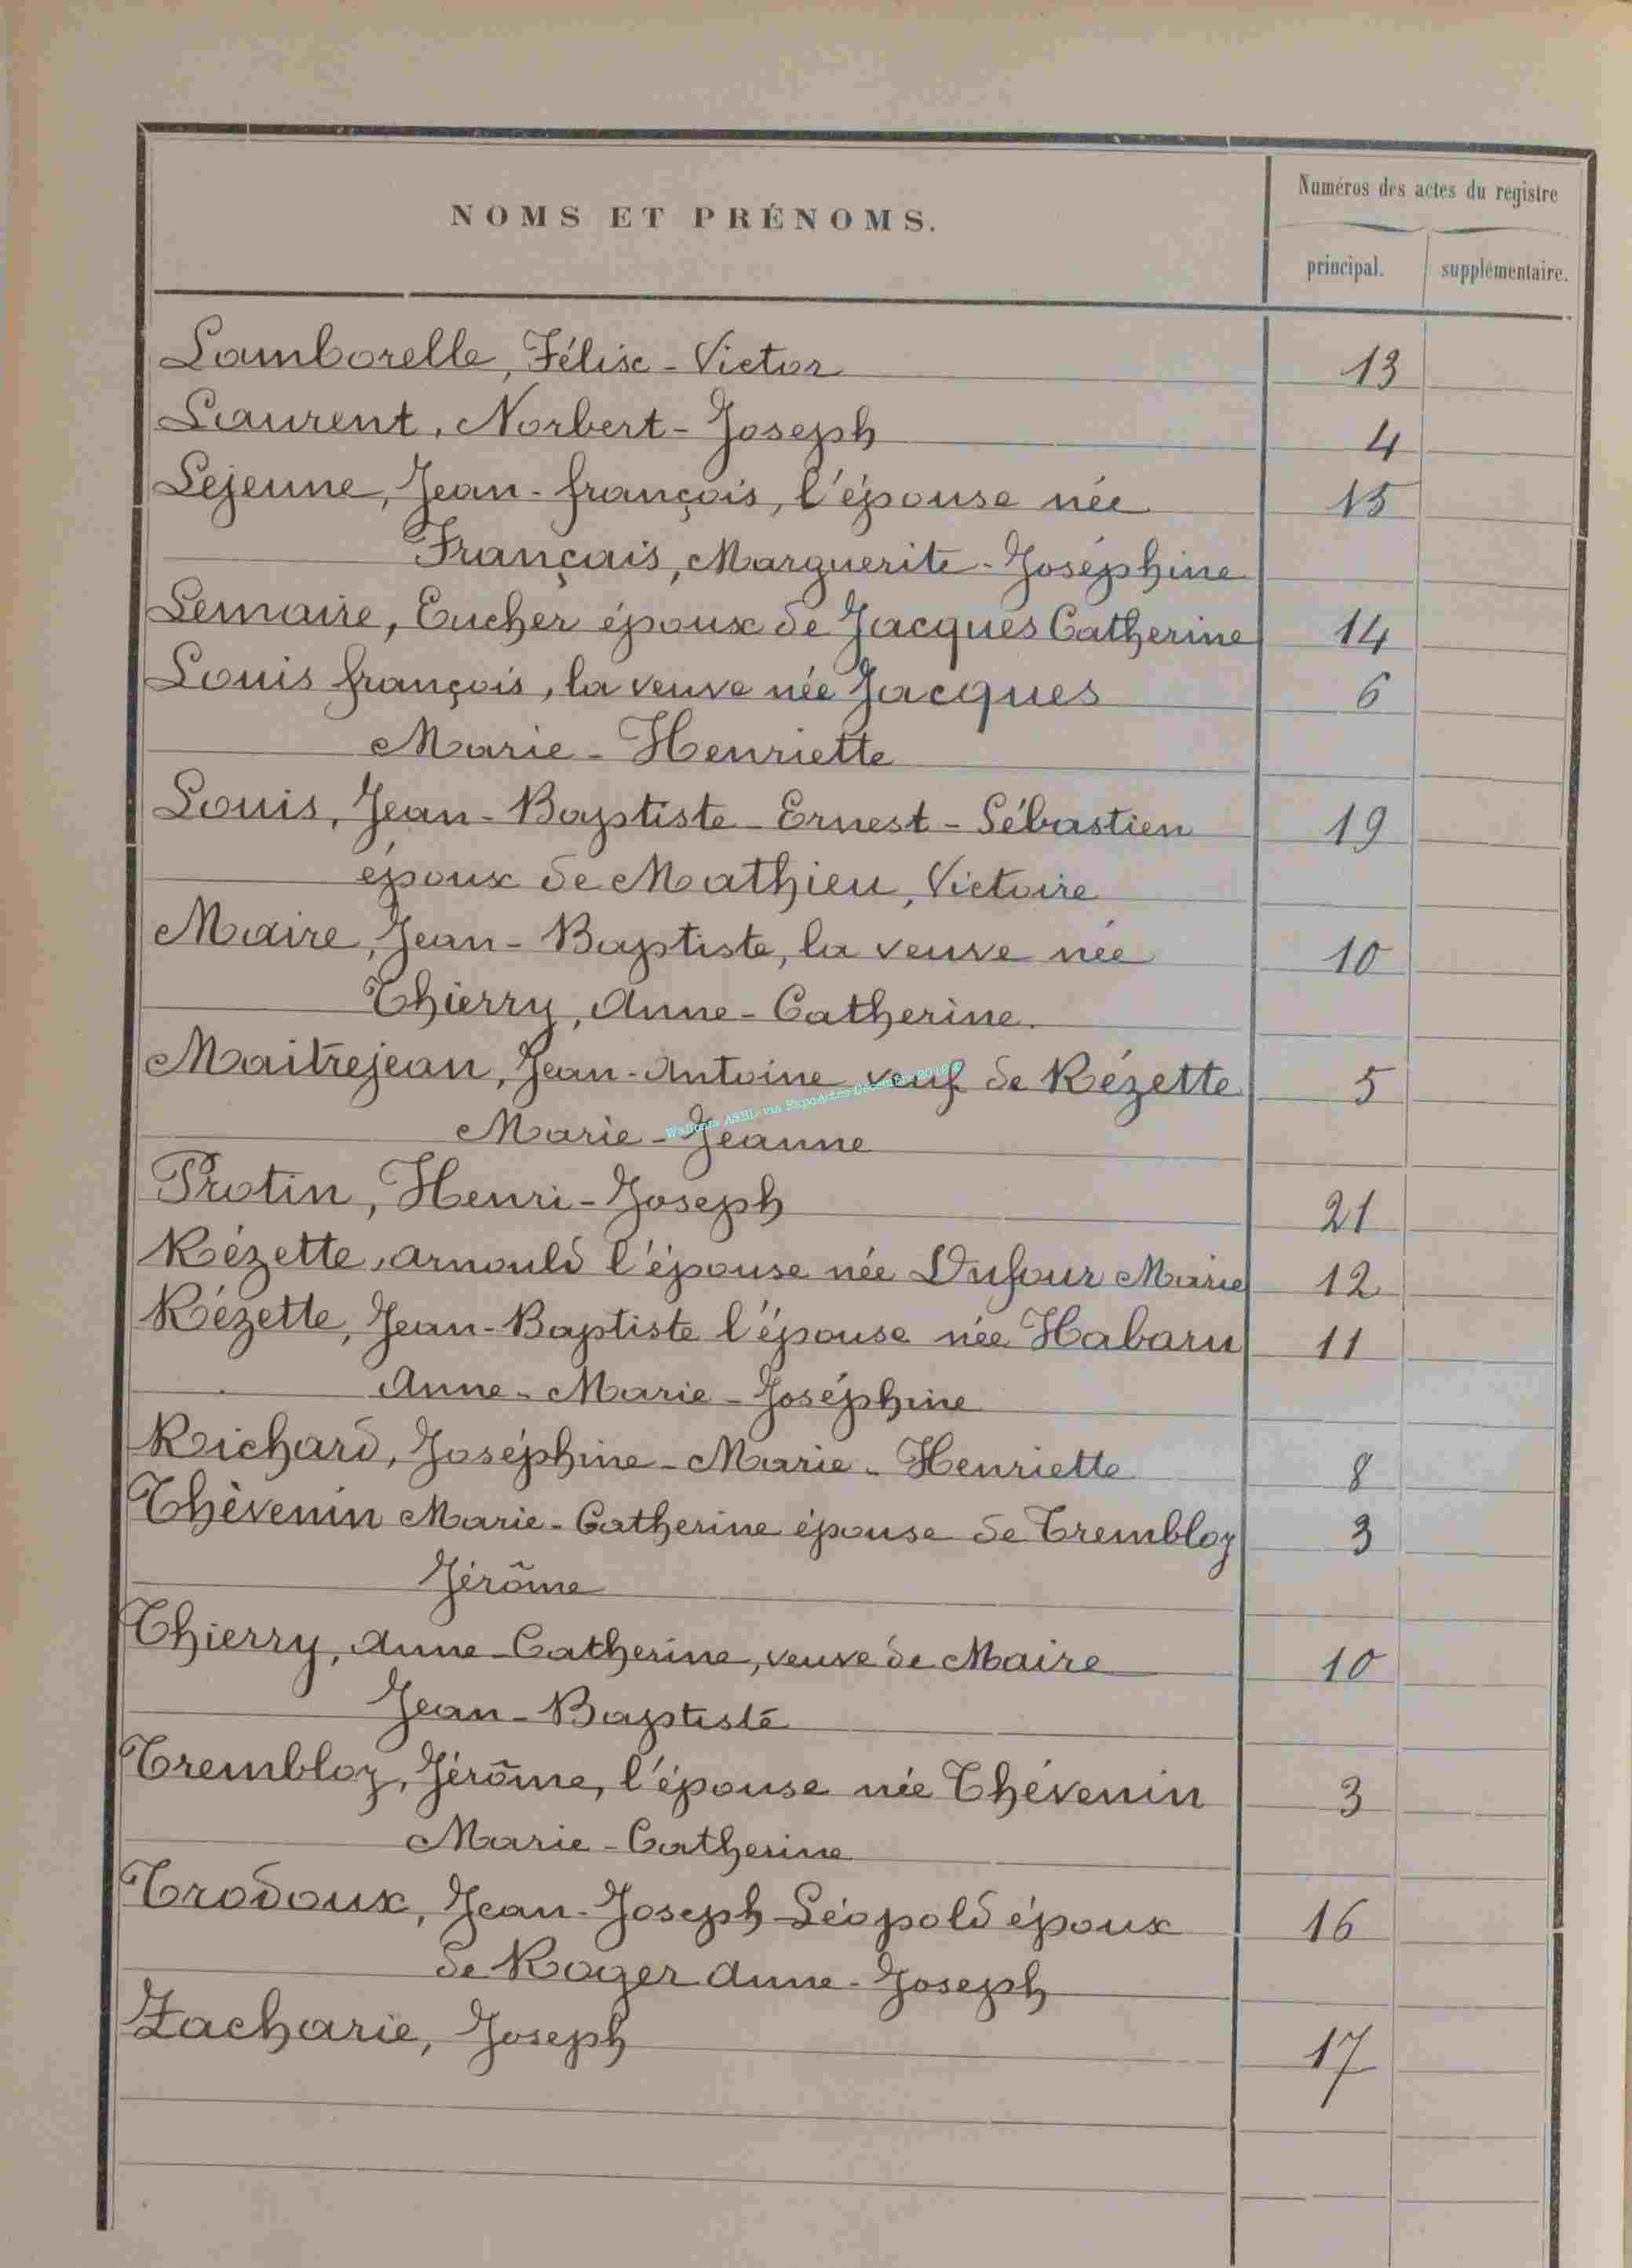 NOMS ET PRÉNOMS.
Numéros des actes du registre
principal. supplémentaire.
Lamborelle, Félix-Victor 13
Laurent, Norbert-Joseph 4
Lejeune, Jean-françois, l'épouse née 15
Français, Marguerite-Joséphine
Lemaire, Eucher époux de Jacques Catherine 14
Louis françois, la veuve née Jacques 6
Marie-Henriette
Louis, Jean-Baptiste-Ernest-Sébastien 19
époux de Mathieu, Victoire
Maire, Jean-Baptiste, la veuve née 10
Thierry, Anne-Catherine.
Maitrejean, Jean-Antoine veuf de Rézette 5
Marie-Jeanne
Protin, Henri-Joseph 21
Rézette, Arnould l'épouse née Dufour Marie 12
Rézette, Jean-Baptiste l'épouse née Habaru 11
Anne-Marie-Joséphine
Richard, Joséphine-Marie-Henriette 8
Thèvenin Marie-Catherine épouse de Trembloy 3
Jérôme
Thierry, Anne-Catherine, veuve de Maire 10
Jean-Baptiste
Trembloy, Jérôme, l'épouse née Thévenin 3
Marie-Catherine
Trodoux, Jean-Joseph-Léopold époux 16
de Roger Anne-Joseph
Zacharie, Joseph 17